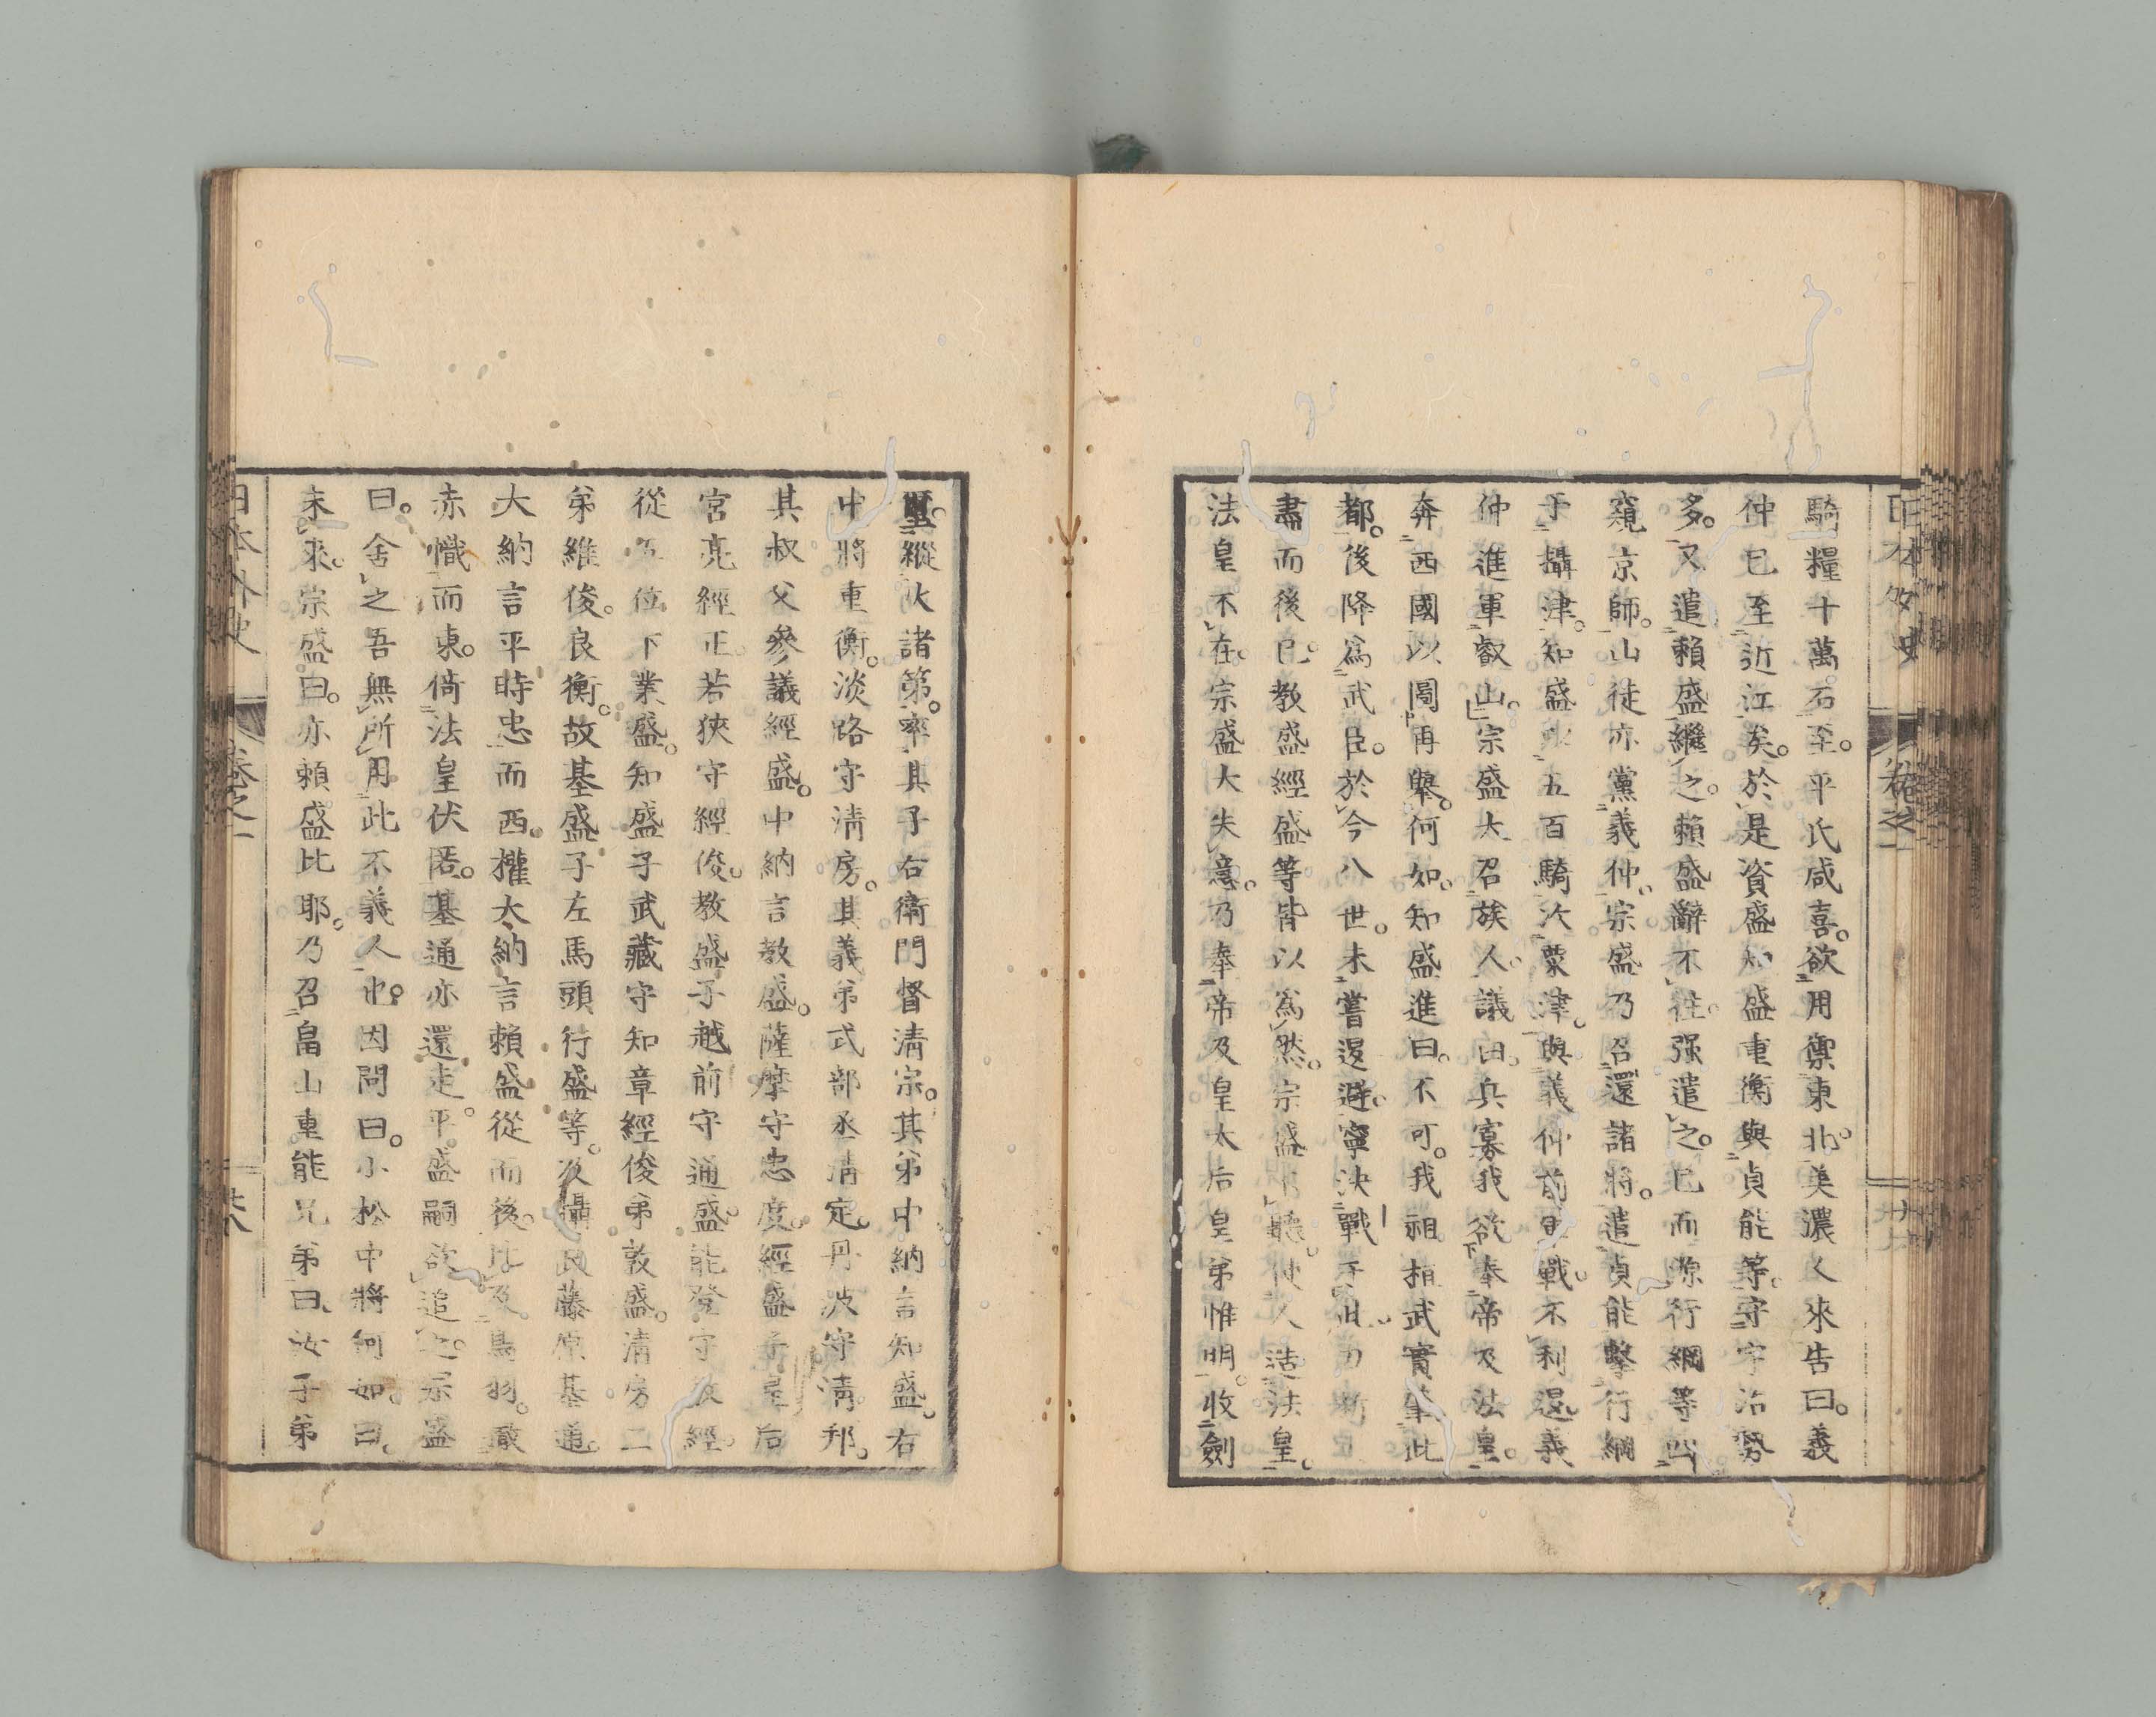 騎糧十萬石至。平氏咸喜。欲用禦東北。美濃人來告曰。義
仲已至近江矣。於是資盛知盛重衡與貞能等。守宇治勢
多。又遣賴盛繼之。賴盛辭不往。强遣之。已而源行綱等四
窺京師。山徒亦黨義仲。宗盛乃召還諸將。遣貞能擊行綱
于攝津。知盛以五百騎次粟津。與義仲前軍戰。不利退。義
仲進軍叡山。宗盛大召族人。議曰。兵寡我欲奉帝及法皇。
奔西國以圖再舉。何如。知盛進曰。不可。我祖桓武實肇此
都。後降爲武臣。於今八世。未嘗退避。寧決戰
盡而後已。教盛經盛等皆以爲然。宗盛不聽。使人造法皇。
法皇不在。宗盛大失意。乃奉帝及皇太后皇弟惟明。收劍
璽。縱火諸第。率其子右衞門督淸宗。其弟中納言知盛。右
中將重衡。淡路守淸房。其義弟式部丞淸定。丹波守淸邦。
其叔父參議經盛。中納言教盛。薩摩守忠度。經盛子皇后
宮亮經正。若狹守經俊。教盛子越前守通盛。能登守教經。
從五位下業盛。知盛子武藏守知章。經俊弟敦盛。淸房二
弟維俊。良衡。故基盛子左馬頭行盛等。及攝政藤原基通。
大納言平時忠而西。權大納言賴盛從而後。比及鳥羽。撤
赤幟而東。倚法皇伏匿。基通亦還走。平盛嗣欲追之。宗盛
曰。舍之吾無所用此不義人也。因問曰。小松中將何如。曰。
未來。宗盛曰。亦賴盛比耶。乃召畠山重能兄弟曰。汝子弟
日本外史　卷之一
日本外史　卷之一　廿八